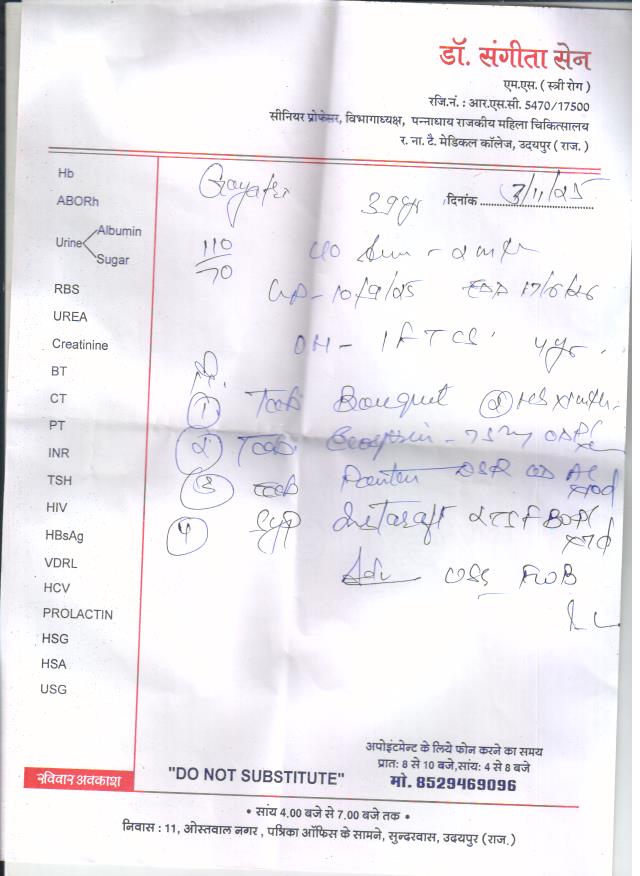 डॉ. संगीता सेन
एम.एस. ( स्त्री रोग )
रजि.नं. : आर.एस.सी. 5470/17500
सीनियर प्रोफेसर, विभागाध्यक्ष, पन्नाधाय राजकीय महिला चिकित्सालय
र. ना. टै. मेडिकल कॉलेज, उदयपुर ( राज. )
Hb
ABORh
Urine Albumin
Sugar
RBS
UREA
Creatinine
BT
CT
PT
INR
TSH
HIV
HBsAg
VDRL
HCV
PROLACTIN
HSG
HSA
USG
Gayatri 39yr दिनांक 3/11/25
110/70
LMP - 10/9/25 EDD 17/6/26
OH - 1 FTCS 4yr
①Tab
② Tab - 75mg
③ Tab DSR OD AC
④ Syp 2TSF
Adv USG FWB
रविवार अवकाश
"DO NOT SUBSTITUTE"
अपोइंटमेन्ट के लिये फोन करने का समय
प्रात: 8 से 10 बजे,सांय: 4 से 8 बजे
मो. 8529469096
• सांय 4.00 बजे से 7.00 बजे तक •
निवास : 11, ओस्तवाल नगर , पत्रिका ऑफिस के सामने, सुन्दरवास, उदयपुर (राज.)